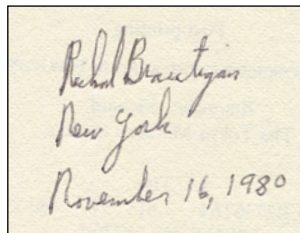 Richard Brautigan
New York
November 16, 1980